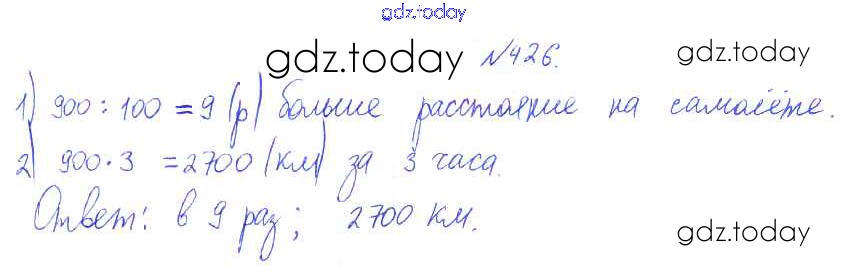 gdz.today
gdz.today №426. gdz.today
1) 900 : 100 = 9 (р) больше расстояние на самолёте.
2) 900 · 3 = 2700 (км) за 3 часа.
Ответ: в 9 раз; 2700 км.
gdz.today